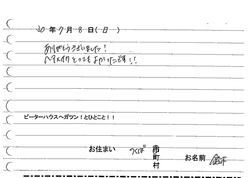 30年9月8日(日)
ありがとうございました!
とってもよかったです!!
ピーターハウスへガツン!とひとこと!!
お住まい つくば 市町村 お名前